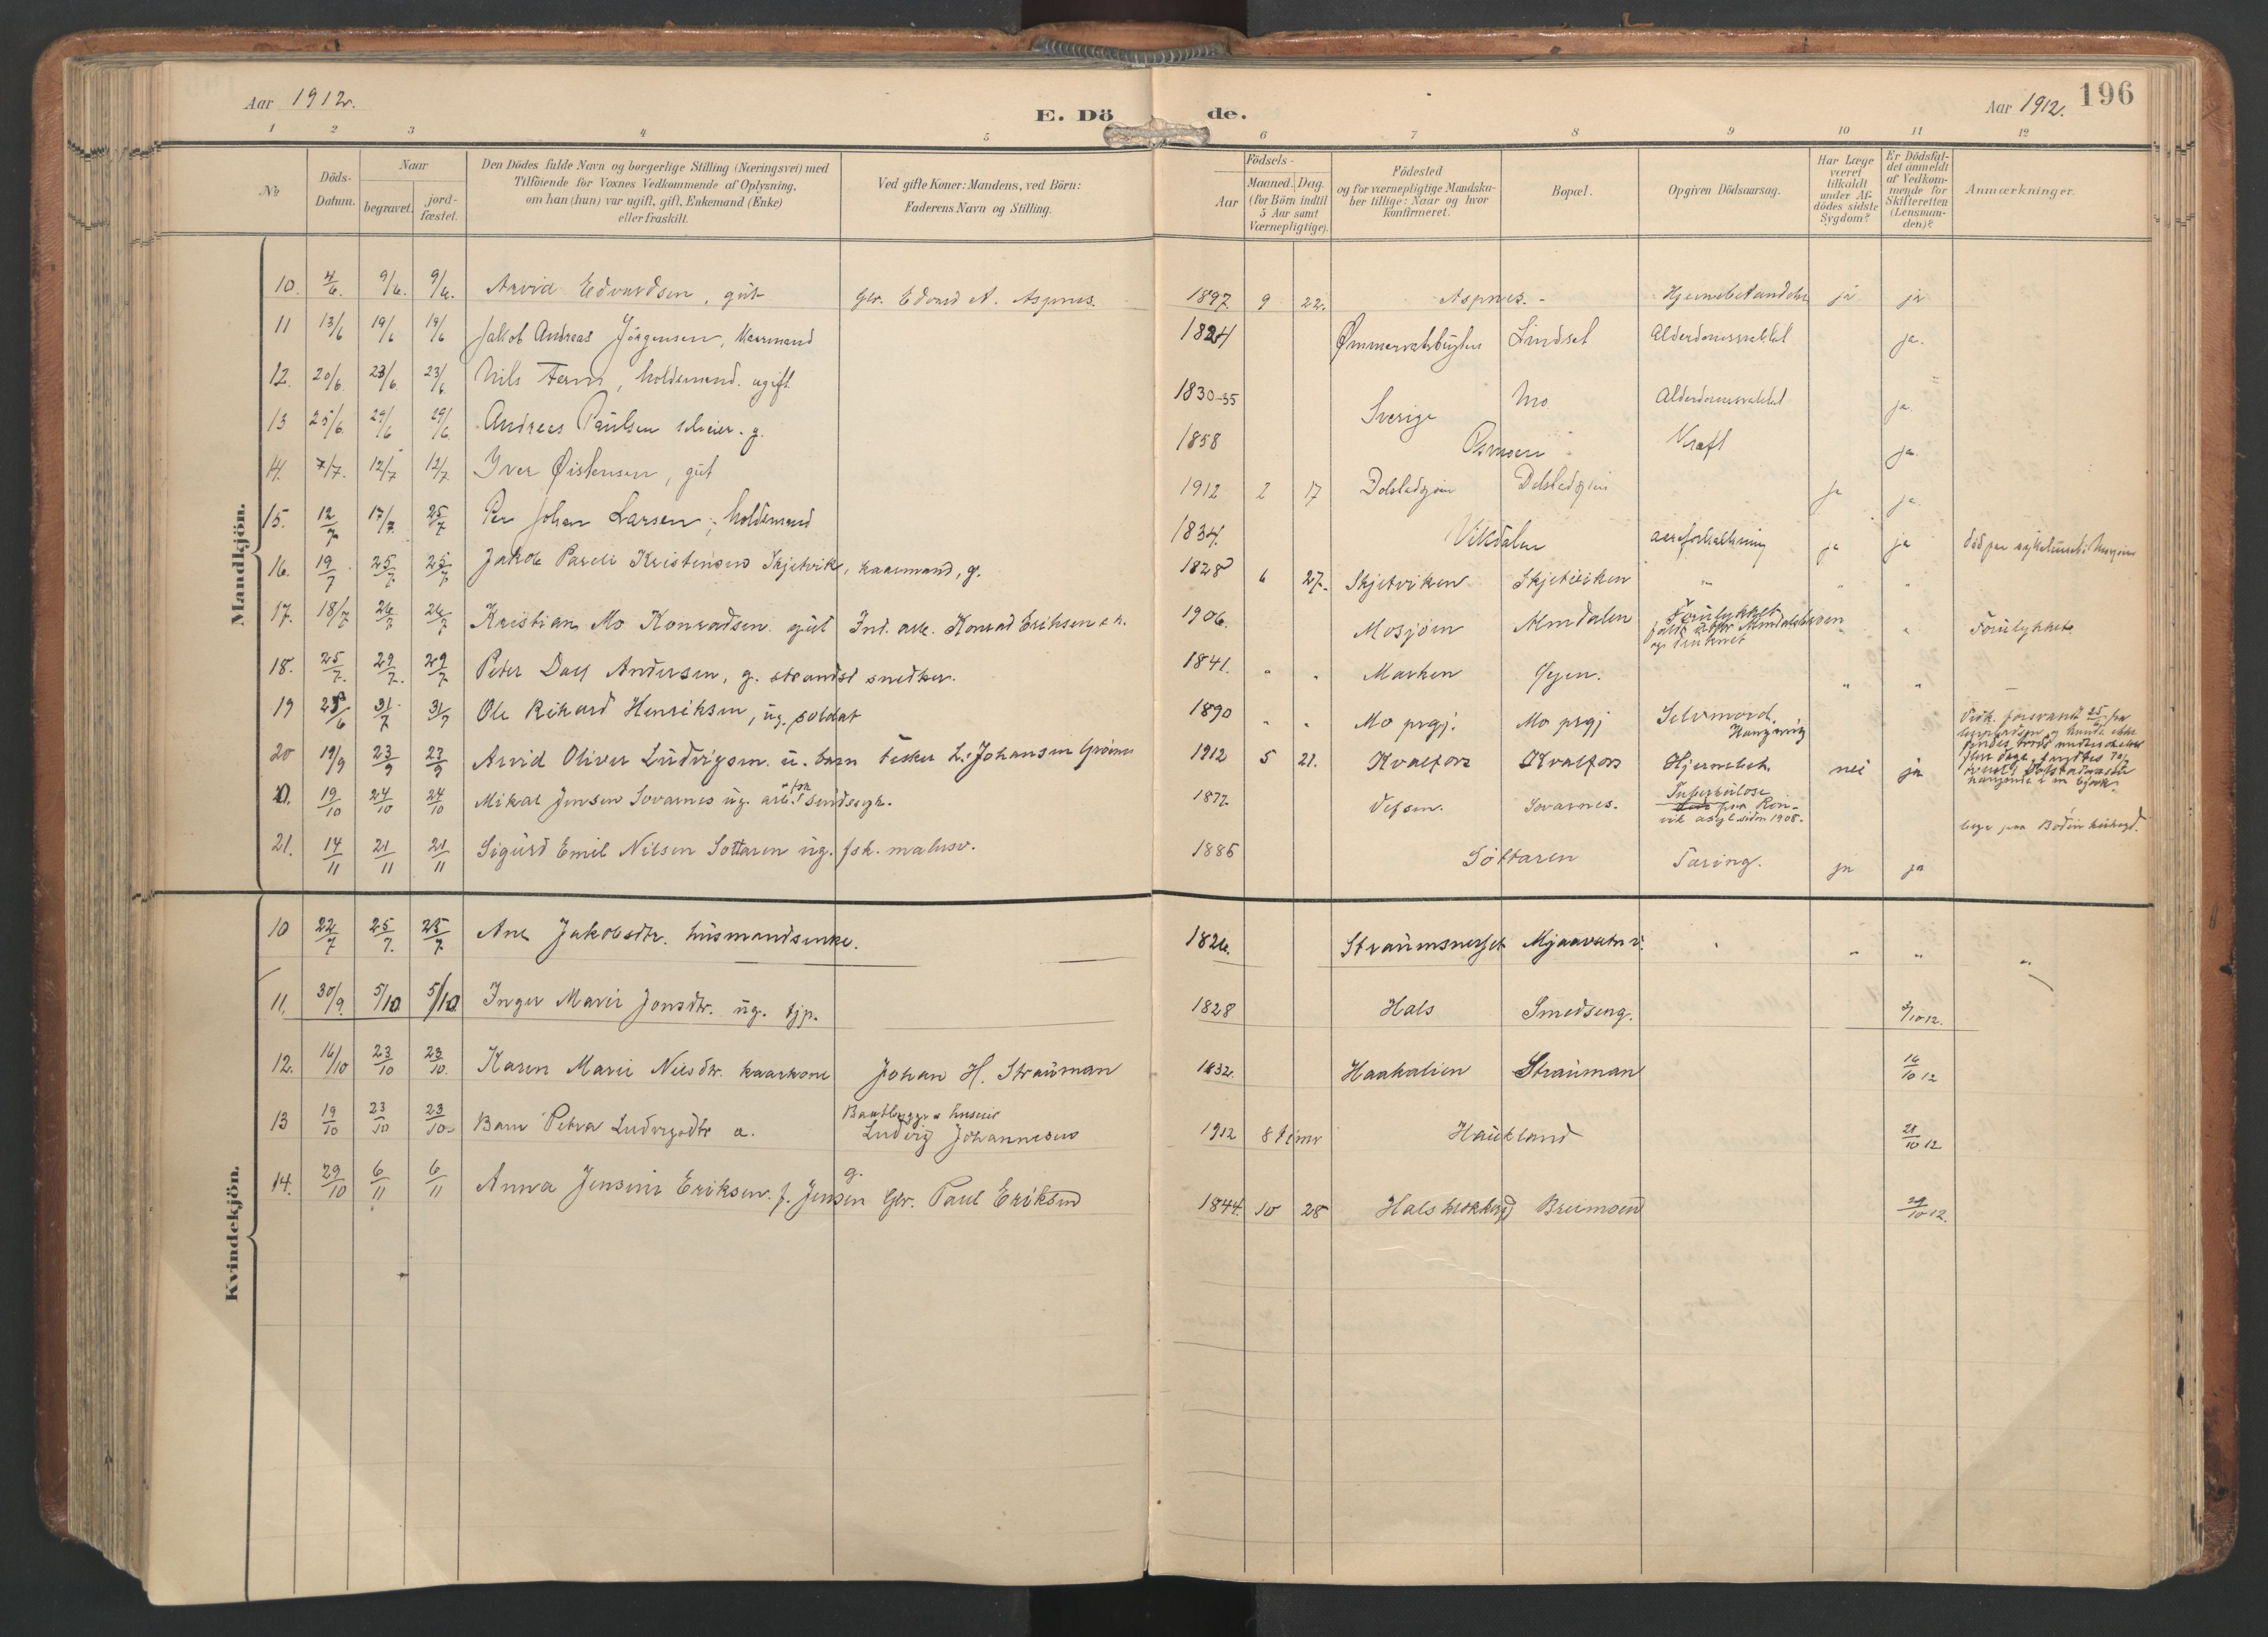 Aar 1912.
E. Dö
de.
Aar 1912.
196
1 2 3 4 5 6 7 8 9 10 11 12
No
Döds-
Datum.
Naar
begravet.
jord-
fæstet.
Den Dödes fulde Navn og borgerlige Stilling (Næringsvei) med
Tilföiende for Voxnes Vedkommende af Oplysning,
om han (hun) var ugift, gift, Enkemand (Enke)
eller fraskilt.
Ved gifte Koner: Mandens, ved Börn:
Faderens Navn og Stilling.
Födsels-
Aar
Maaned. Dag.
(for Börn indtil
5 Aar samt
Værnepligtige).
Födested
og for værnepligtige Mandska-
ber tillige: Naar og hvor
konfirmeret.
Bopæl.
Opgiven Dödsaarsag.
Har Læge
været
tilkaldt
under Af-
dödes sidste
Sygdom?
Er Dödsfal-
det anmeldt
af Vedkom-
mende for
Skifteretten
(Lensman-
den)?
Anmærkninger.
Mandkjön.
10. 4/6. 9/6. 9/6. Arvid Edvardsen, gut Gbr. Edvard A. Aspnes. 1897. 9 22. Aspnes. - ja ja
11 13/6 19/6 19/6 Jakob Andreas Jörgensen, Kaarmand 1824 Lindset Alderdomssvakhet ja.
12. 20/6 23/6 23/6 Nils Ferm, holdsmand. ugift 1830-35 Sverige Mo Alderdomssvakhet ja.
13 25/6. 29/6 29/6. Andreas Paulsen selveier. g. 1858 Osmoen Kræft ja.
14. 7/7. 12/7 12/7 Iver Øistensen, gut 1912 2 17 Dolstadsjøen Dolstadsjøen ja ja
15. 12/7 17/7. 25/7 Per Johan Larsen, holdsmand 1834. Vikdalen aareforkalkning ja ja
16. 19/7 25/7. 25/7 Jakob Pareli Kristensen Skjetvik, kaarmand, g. 1828 6 27. Skjetviken Skjetviken " " "
17. 18/7 26/7 26/7 Kristian Mo Konradsen gut Ind. arb. Konrad Eriksen 1906. Mosjøen Almdalen Forulykket " " Forulykket.
18. 25/7. 29/7. 29/7 Peter Dass Andersen, g. strandsd snedker. 1841. " " Marken Øyen. " "
19 25/6 31/7 31/7 Ole Rikard Henriksen, ug. soldat 1890 " " Mo prgj. Mo prgj Selvmord.
Hængning
20 19/9 23/9 23/9 Arvid Oliver Ludvigsen u. barn fisker L. Johansen 1912 5 21. Kvalfors Kvalfors Hjernebet. nei ja
21. 19/10 24/10 24/10 Mikal Jensen Sovarnes ug. arb. sindssyk. 1877. Vefsen. Sovarnes. Tuberkulose
paa Rön-
vik asyl siden 1908.
21. 14/11 21/11 21/11 Sigurd Emil Nilsen Sottaren ug. fsk. 1885 Söttaren Tæring. ja ja
Kvindekjön.
10 22/7 25/7. 25/7. Ane Jakobsdtr. husmandsenke. 1826. Mjaavatn " " "
11. 30/9. 5/10 5/10 Inger Marie Jonsdtr. ug. tjp. 1828 Hals Smedseng. 3/10 12.
12. 16/10 23/10 23/10. Karen Marie Nilsdtr. kaarkone Johan H. Strauman 1832. Haakalien Strauman 16/10 12
13 19/10 23/10 23/10. Barn Petra Ludvigsdtr æ. Baatbygger & huseier
Ludvig Johannesen 1912 8 timer Haukland 21/10 12
14. 29/10 6/11 6/11 Anna Jensine Eriksen f. Jensen g. Gbr. Paul Eriksen 1844. 10 28 Bremoen 29/10 12.